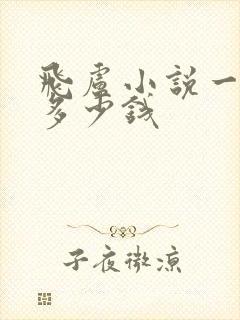 飛盧小說一
多少錢
子夜微涼